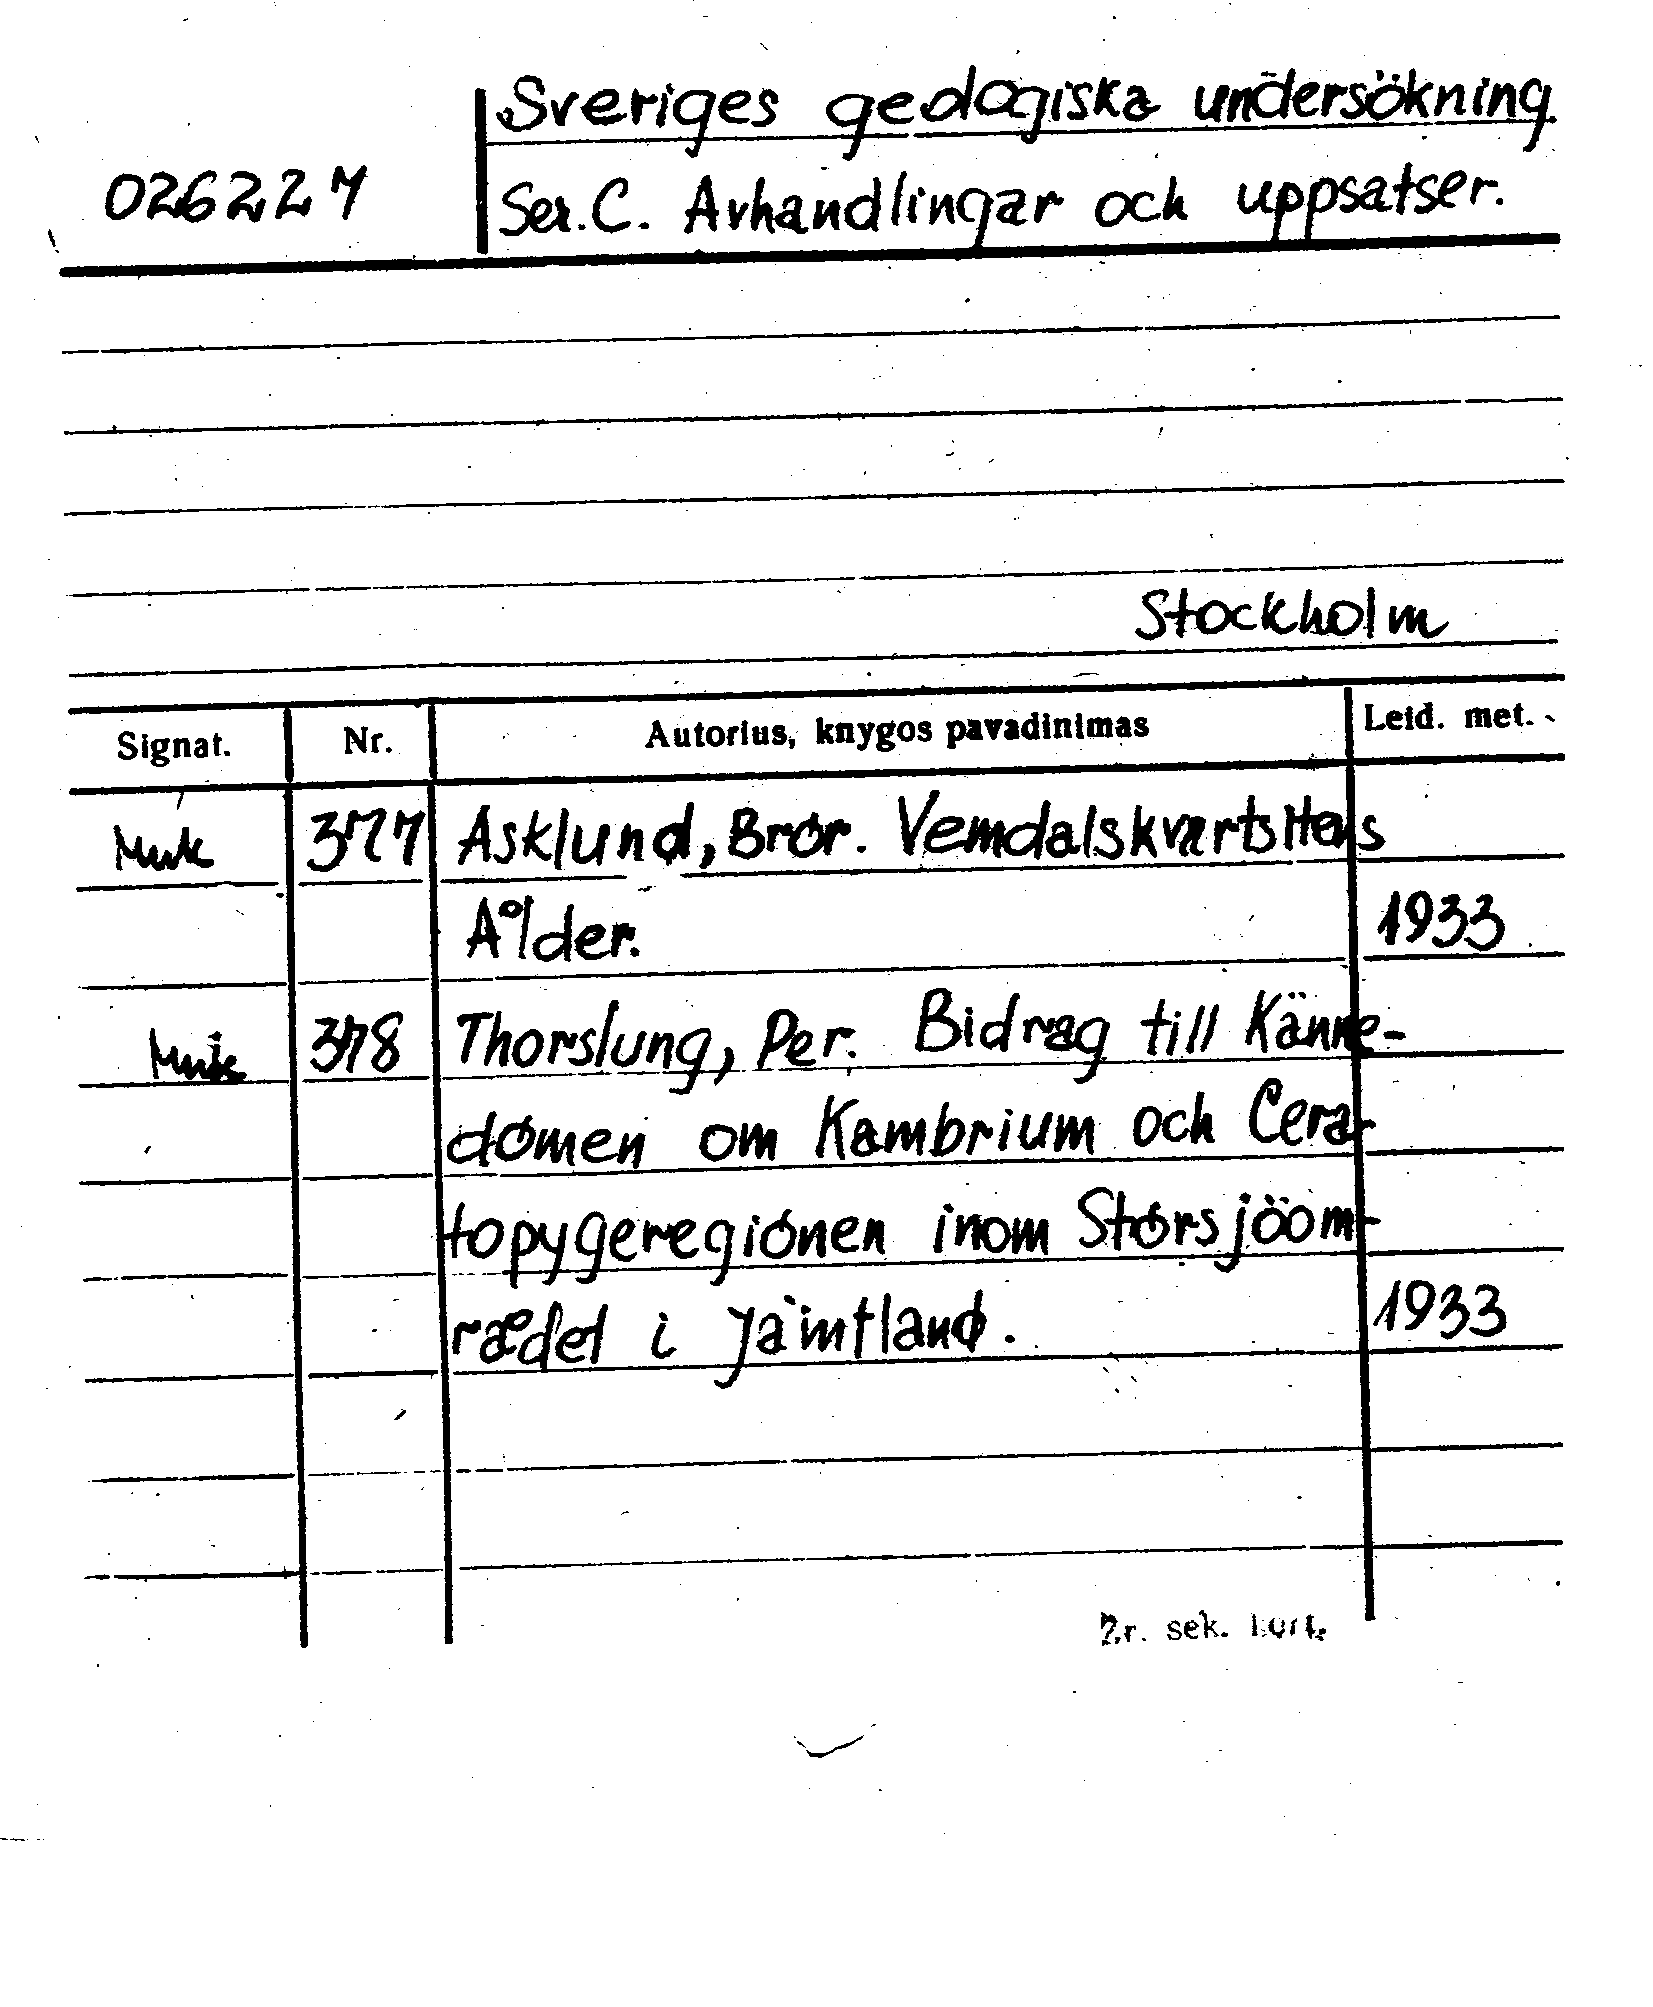 Sveriges geologiska undersökning.
026227 Ser. C. Avhandlingar och uppsatser.
Stockholm
Signat. Nr. Autorius, knygos pavadinimas Leid. met.
Muk 377 Asklund, Bror. Vemdalskvartsitens
Ålder. 1933
Muk 378 Thorslung, Per. Bidrag till Känne-
domen om Kambrium och Cera-
topygeregionen inom Storsjöom-
rådet i Jämtland. 1933
sek. kort.